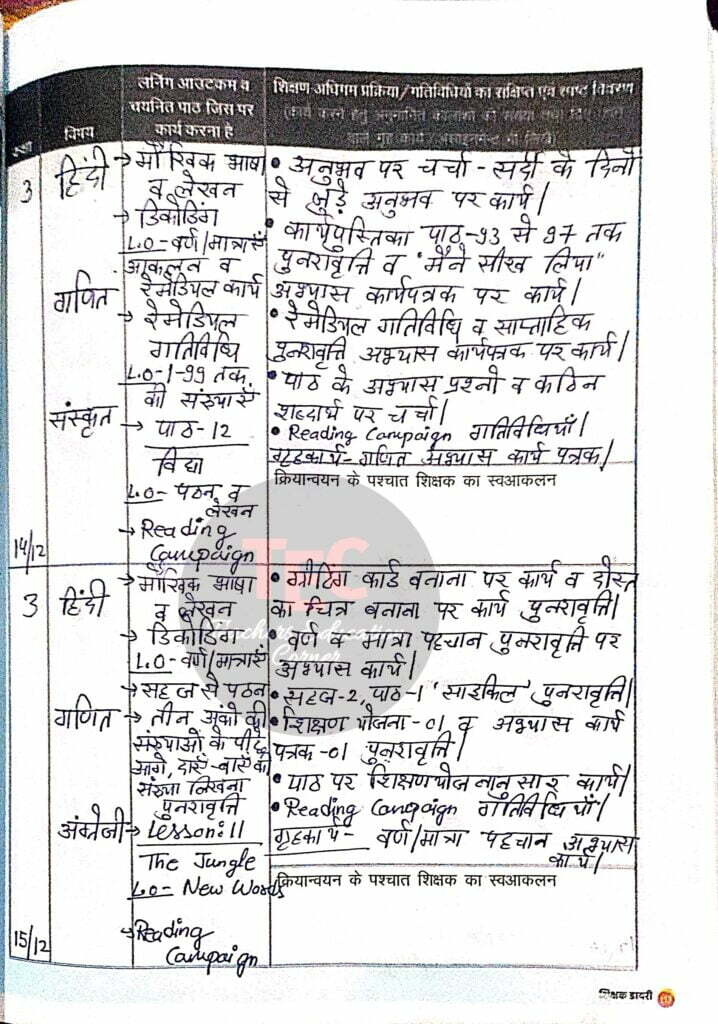 लर्निंग आउटकम व
चयनित पाठ जिस पर
कार्य करना है
विषय
शिक्षण अधिगम प्रक्रिया/गतिविधियों का संक्षिप्त एवं स्पष्ट विवरण
3
हिंदी
→ मौखिक भाषा
व लेखन
→ डिकोडिंग
L.O-वर्ण/मात्राएँ
आकलन व
रेमेडियल कार्य
गणित
→ रेमेडियल
गतिविधि
L.O-1-99 तक
की संख्याएँ
संस्कृत
→ पाठ-12
विद्या
L.O- पठन व
लेखन
→ Reading
Campaign
14/12
• अनुभव पर चर्चा - सर्दी के दिनों
से जुड़े अनुभव पर कार्य|
• कार्यपुस्तिका पाठ-93 से 97 तक
पुनरावृत्ति व "मैंने सीख लिया"
अभ्यास कार्यपत्रक पर कार्य|
• रेमेडियल गतिविधि व साप्ताहिक
पुनरावृत्ति अभ्यास कार्यपत्रक पर कार्य|
• पाठ के अभ्यास प्रश्नो व कठिन
शब्दार्थ पर चर्चा|
• Reading Campaign गतिविधियाँ|
गृहकार्य- गणित अभ्यास कार्य पत्रक|
क्रियान्वयन के पश्चात शिक्षक का स्वआकलन
TEC
Teachers Education
Corner
3
हिंदी
→ मौखिक भाषा
व लेखन
→ डिकोडिंग
L.O-वर्ण/मात्राएँ
→ सहज से पठन
गणित
→ तीन अंको की
संख्याओं के पीछे,
आगे, दाएँ-बाएँ की
संख्या लिखना
पुनरावृत्ति
अंग्रेजी
→ Lesson:11
The Jungle
L.O- New Words
→ Reading
Campaign
15/12
• ग्रीटिंग कार्ड बनाना पर कार्य व दोस्त
का चित्र बनाना पर कार्य पुनरावृत्ति|
• वर्ण व मात्रा पहचान पुनरावृत्ति पर
अभ्यास कार्य|
• सहज-2, पाठ-1 'साइकिल' पुनरावृत्ति|
• शिक्षण योजना-01 व अभ्यास कार्य
पत्रक-01 पुनरावृत्ति|
• पाठ पर शिक्षण योजनानुसार कार्य|
• Reading Campaign गतिविधियाँ|
गृहकार्य- वर्ण/मात्रा पहचान अभ्यास
कार्य|
क्रियान्वयन के पश्चात शिक्षक का स्वआकलन
शिक्षक डायरी